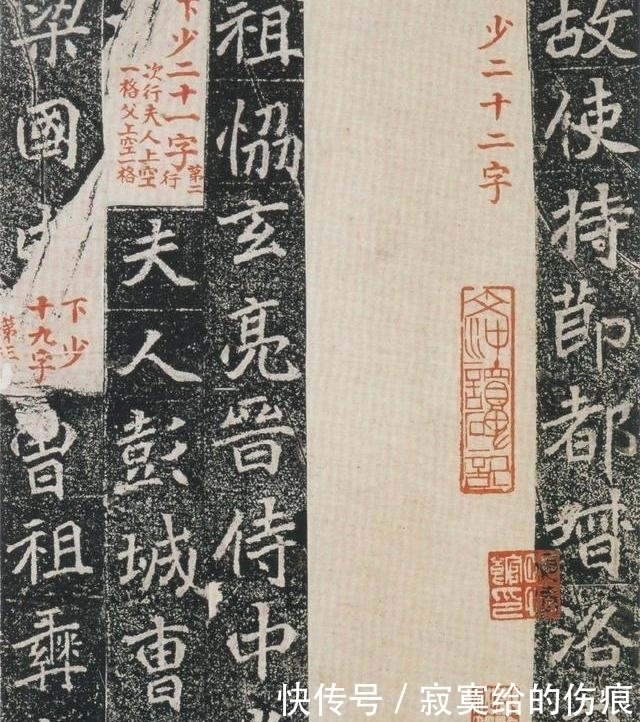 故使持節都督洛
少二十二字
祖恊玄亮晉侍中
第二行
下少二十一字
次行夫人上空
一格父上空一格
夫人彭城曹
梁國
下少
十九字
第三
曾祖彝
快传号 / 寂寞给的伤痕